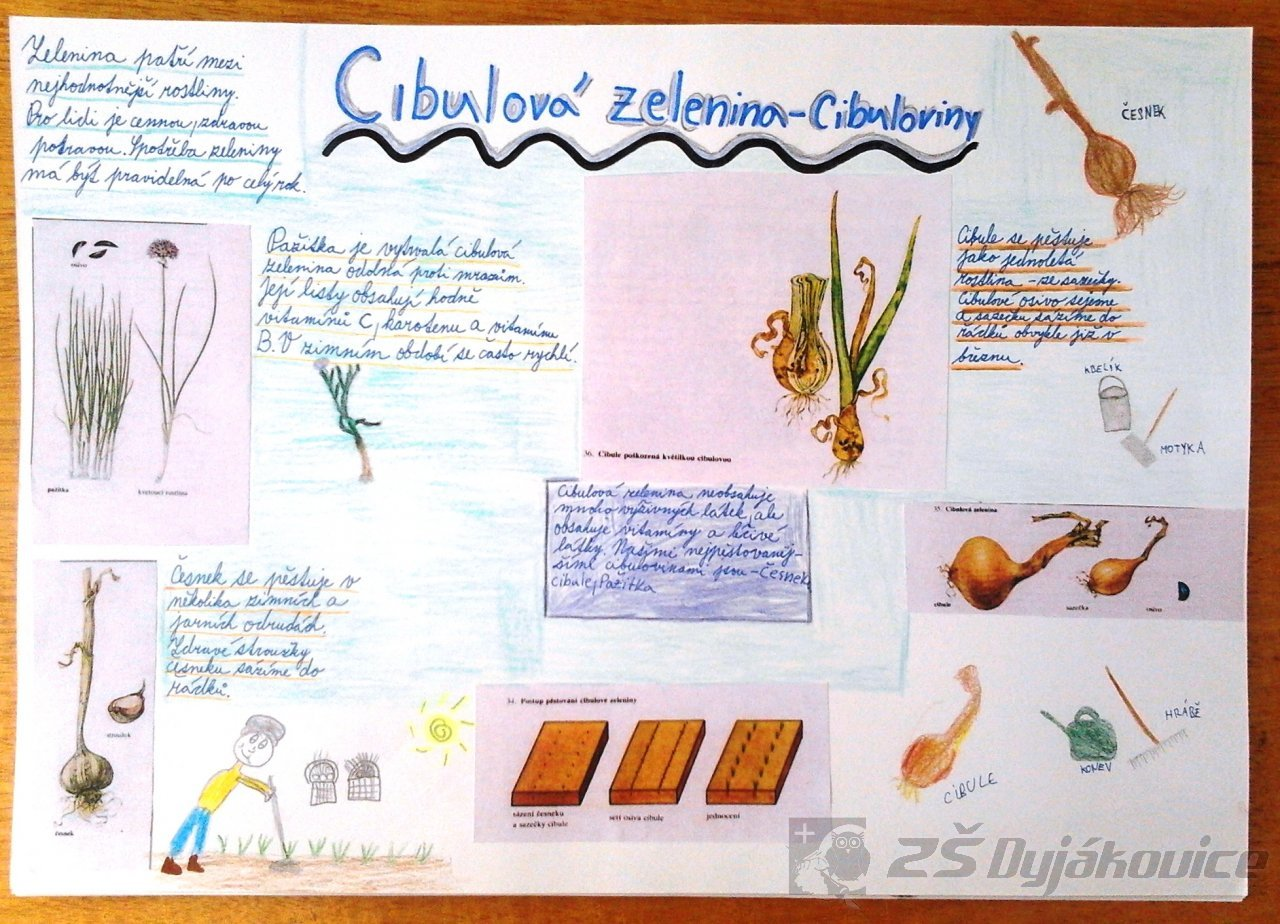 Cibulová zelenina-Cibuloviny
Zelenina patří mezi
nejhodnotnější rostliny.
Pro lidi je cennou, zdravou
potravou. Spotřeba zeleniny
má být pravidelná po celý rok.
ČESNEK
osivo
pažitka
kvetoucí rostlina
Pažitka je vytrvalá cibulová
zelenina odolná proti mrazům.
Její listy obsahují hodně
vitamínů C, karotenu a vitamínu
B. V zimním období se často rychlí.
36. Cibule poškozená květilkou cibulovou
Cibule se pěstuje
jako jednoletá
rostlina - ze sazečky.
Cibulové osivo sejeme
a sazečku sázíme do
řádků obvykle již v
březnu.
KBELÍK
MOTYKA
Cibulová zelenina neobsahuje
mnoho výživných látek, ale
obsahuje vitamíny a léčivé
látky. Našimi nejpěstovaněj-
šími cibulovinami jsou - Česnek,
cibule, Pažitka
35. Cibulová zelenina
cibule
sazečka
osivo
stroužek
česnek
Česnek se pěstuje v
několika zimních a
jarních odrudách.
Zdravé stroužky
česneku sázíme do
řádků.
34. Postup pěstování cibulové zeleniny
sázení česneku
a sazečky cibule
setí osiva cibule
jednocení
CIBULE
KONEV
HRÁBĚ
ZŠ Dyjákovice